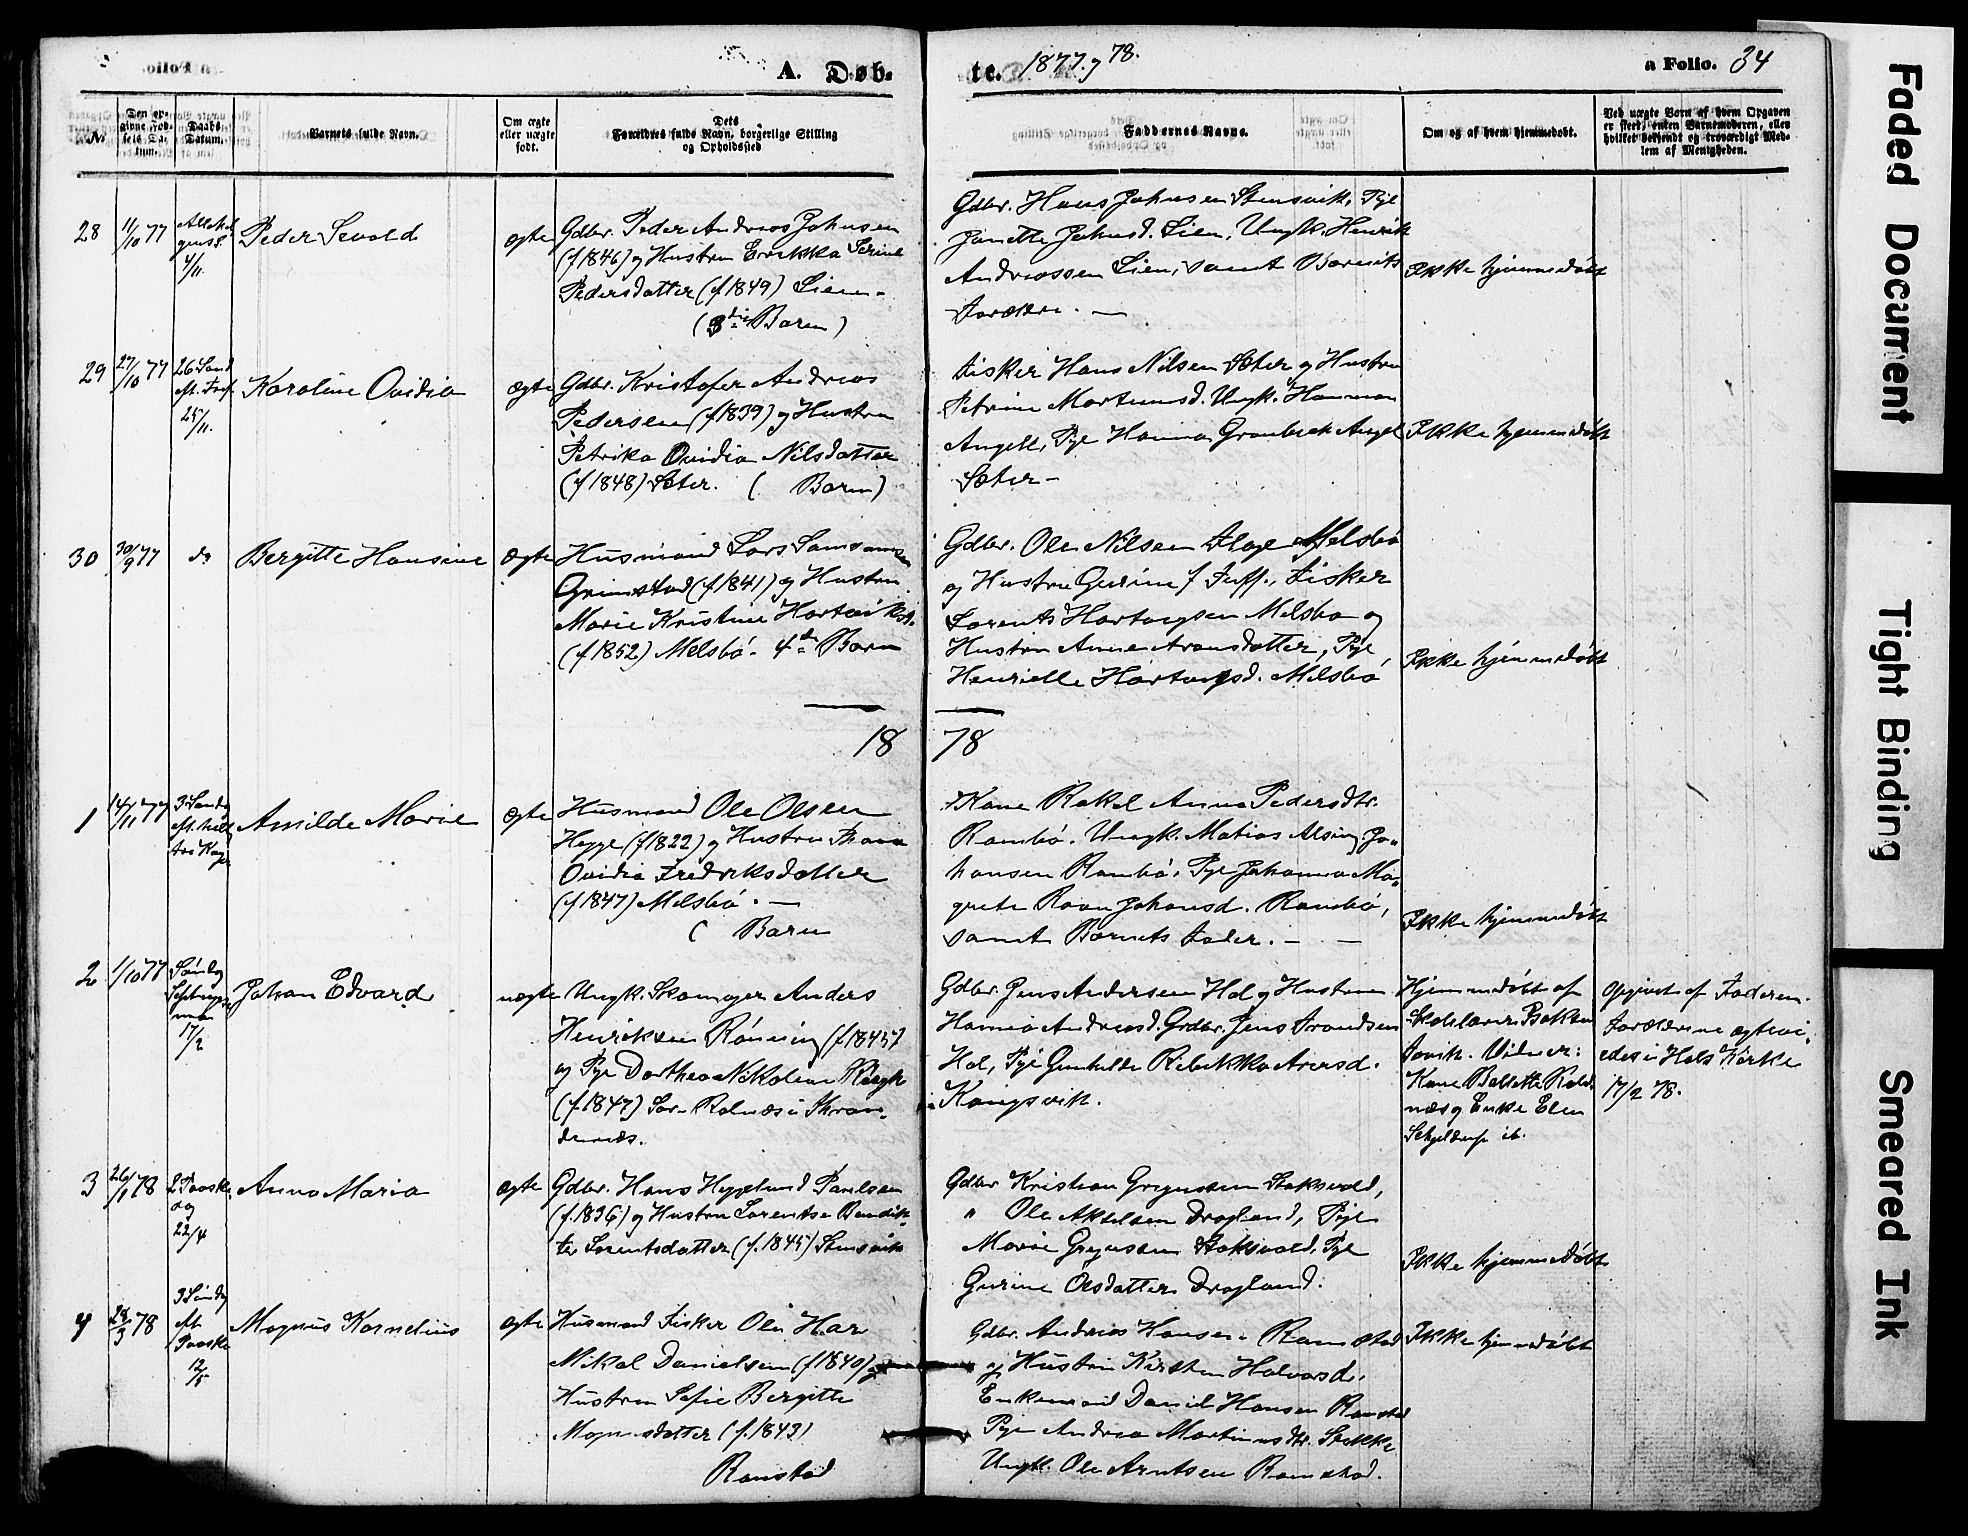 A. Døb-
te. 1877 og 78.
a Folio. 34
No.
Den op-
givne Fød-
sels Da-
tum.
Daabs
Datum.
Barnets fulde Navn.
Om ægte
eller uægte
født.
Dets
Forældres fulde Navn, borgerlige Stilling
og Opholdssted
Faddernes Navne.
Om og af hvem hjemmedøbt.
Ved uægte Børn af hvem Opgaven
er skeet, enten Barnemoderen, eller
hvilket bekjendt og troværdigt Med-
lem af Menigheden.
28
11/10 77
4/11.
Peder Sevald
ægte
Gdbr. Peder Andreas Johnsen
(f 1846) og Hustru Erikka Serine
Pedersdatter (f 1849) Lien.
(3die Barn)
Gdbr. Hans Johnsen Stensvik, Pige
Janette Johnsd. Lien, Ungk. Henrik
Andreassen Lien, samt Barnets
Forældre. —
Ikke hjemmedøbt
29
27/10 77
26 Sønd
eft. Tref.
25/11.
Karoline Ovidia
ægte
Gdbr. Kristofer Andreas
Pedersen (f 1839) og Hustru
Petrika Ovidia Nilsdatter
(f 1848) Sæter. ( Barn)
Fisker Hans Nilsen Sæter og Hustru
Petrine Mortensd. Ungk. Hanman
Angell, Pige Hanna Angel
Sæter —
Ikke hjemmedøbt
30
30/9 77
do
Bergitte Hansine
ægte
Husmand Lars Samsonsen
Grimstad (f 1841) og Hustru
Marie Kristine Hartviksd.
(f 1852) Melsbø. 4de Barn
Gdbr. Ole Nilsen Melsbø
og Hustru Gurine f. Fisker
Lorents Hartvigsen Melsbø og
Hustru Anne Aronsdatter, Pige
Henrielle Hartvigsd. Melsbø
Ikke hjemmedøbt
18 78
1
14/11 77
3 Søndag
eft. Hell
tre Kong
Amilde Marie
ægte
Husmand Ole Olsen
Hegge (f 1822) og Hustru
Ovidia Fredriksdatter
(f 1847) Melsbø. —
( Barn
Kone Rakel Anna Pedersdtr.
Rambø. Ungk. Matias Alsing Jo-
hansen Rambø, Pige Johanna Ma-
grete Johansd. Rambø,
samt Barnets Fader. — —
Ikke hjemmedøbt
2
1/10 77
Søndag
Septuages
ma
17/2
Johan Edvard
uægte
Ungk. Skomager Anders
Henriksen Rønning (f 1845)
og Pige Dorthea Nikoline
(f. 1847) Sør-Rolnæs i Thron-
denæs.
Gdbr. Jens Andersen Hol og Hustru
Hanna Andreasd. Grdbr. Jens Trondsen
Hol, Pige Gunhilde Rebekka Arersd.
Kongsvik.
Hjemmedøbt af
Skolelærer
Vidner:
Kone
næs og Enke Elen
Schjelderup ib.
Opgivet af Faderen.
Forældrene ægtevi-
edes i Hols Kirke
17/2 78.
3
26/1 78
2 Paaske
dag
22/4
Anna Maria
ægte
Gdbr. Hans Heggelund Paulsen
(f. 1836) og Hustru Lorentse Bendik-
te Lorentsdatter (f. 1845) Stensvik
Gdbr Kristian Gregusen Stoksvold,
" Ole Akselsen Drogland, Pige
Marie Gregusen Stoksvold, Pige
Gurine Olsdatter Drogland.
Ikke hjemmedøbt
4
28/3 78
3 Søndag
eft
Paaske
12/5
Magnus Kornelius
ægte
Husmand Fisker Ole Har
Mikal Danielsen (f 1840) og
Hustru Sofie Bergitte
Magnusdatter (f. 1843)
Ramstad
Gdbr. Andreas Hansen Ramstad
og Hustru Kirsten Halvorsd.
Enkemand Daniel Hansen Ramstad
Pige Andrea Martinusdtr.
Ungk. Ole Arntsen Ramstad.
Ikke hjemmedøbt
Faded Document
Tight Binding
Smeared Ink